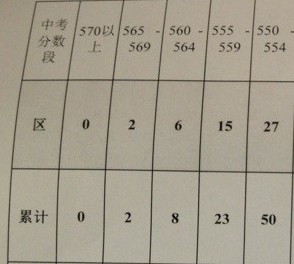 中考分数段 570以上 565 - 569 560 - 564 555 - 559 550 - 554
区 0 2 6 15 27
累计 0 2 8 23 50